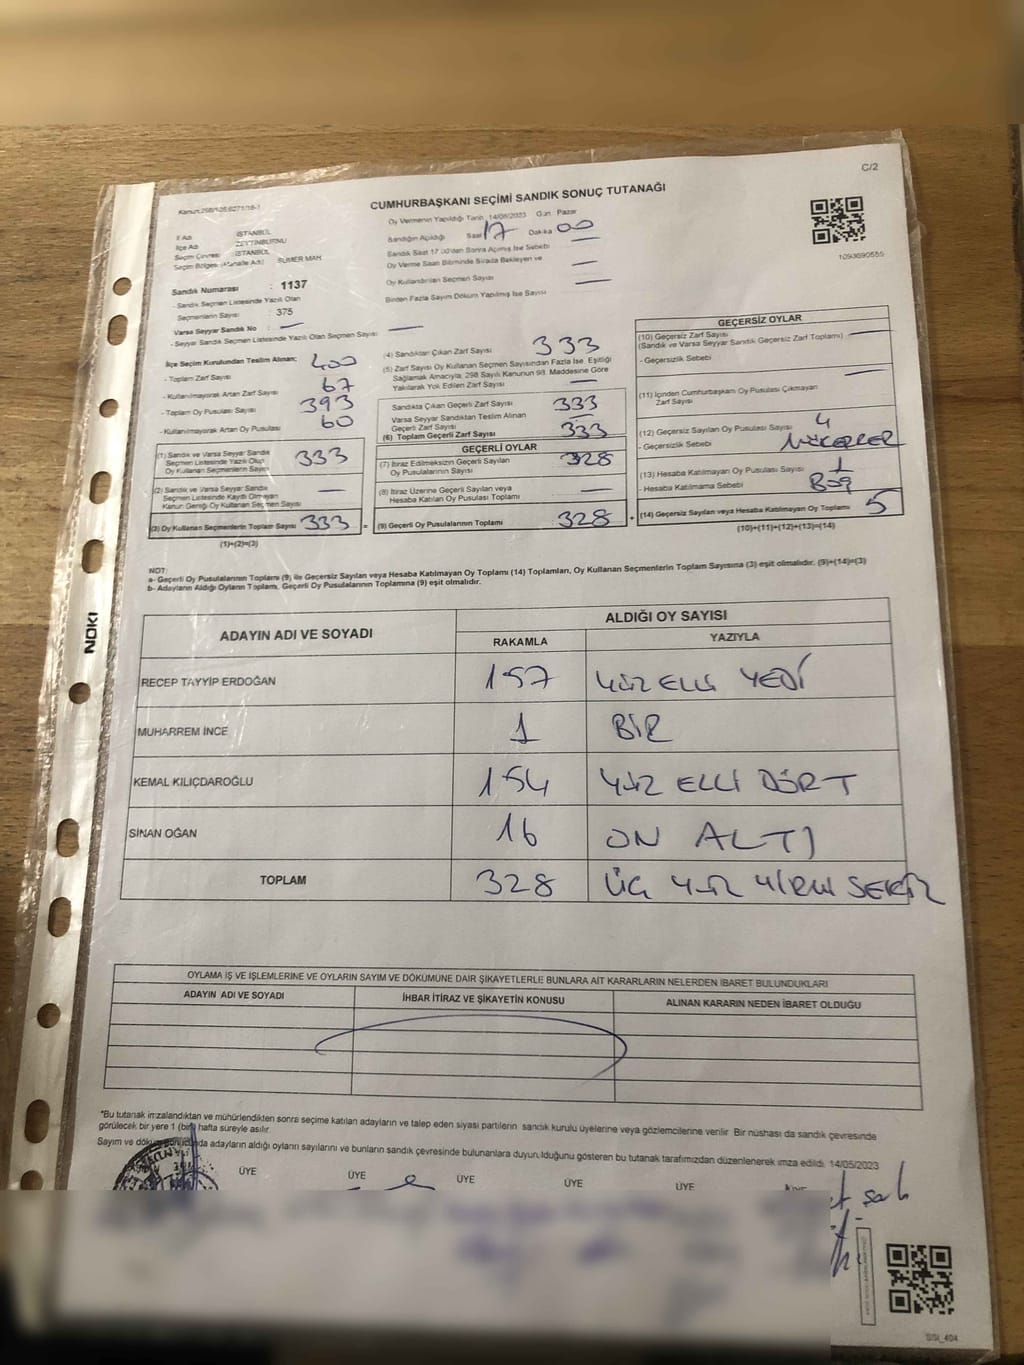 C/2
Kanun:298/105,6271/18-1
CUMHURBAŞKANI SEÇİMİ SANDIK SONUÇ TUTANAĞI
Oy Vermenin Yapıldığı Tarih 14/05/2023 Gün : Pazar
İl Adı : İSTANBUL
İlçe Adı : ZEYTİNBURNU
Seçim Çevresi : İSTANBUL
Seçim Bölgesi (Mahalle Adı) : SÜMER MAH
Sandığın Açıldığı Saat 17 Dakika 00
Sandık Saat 17.00'den Sonra Açılmış İse Sebebi
Oy Verme Saati Bitiminde Sırada Bekleyen ve
Oy Kullandırılan Seçmen Sayısı
Birden Fazla Sayım Döküm Yapılmış İse Sayısı
1093690555
Sandık Numarası : 1137
- Sandık Seçmen Listesinde Yazılı Olan
Seçmenlerin Sayısı : 375
Varsa Seyyar Sandık No :
- Seyyar Sandık Seçmen Listesinde Yazılı Olan Seçmen Sayısı
İlçe Seçim Kurulundan Teslim Alınan;
- Toplam Zarf Sayısı 400
- Kullanılmayarak Artan Zarf Sayısı 67
- Toplam Oy Pusulası Sayısı 393
- Kullanılmayarak Artan Oy Pusulası 60
(1) Sandık ve Varsa Seyyar Sandık
Seçmen Listesinde Yazılı Olup
Oy Kullanan Seçmenlerin Sayısı 333
(2) Sandık ve Varsa Seyyar Sandık
Seçmen Listesinde Kayıtlı Olmayan
Kanun Gereği Oy Kullanan Seçmen Sayısı
(3) Oy Kullanan Seçmenlerin Toplam Sayısı 333 =
(1)+(2)=(3)
(4) Sandıktan Çıkan Zarf Sayısı 333
(5) Zarf Sayısı Oy Kullanan Seçmen Sayısından Fazla İse, Eşitliği
Sağlamak Amacıyla, 298 Sayılı Kanunun 98. Maddesine Göre
Yakılarak Yok Edilen Zarf Sayısı
Sandıkta Çıkan Geçerli Zarf Sayısı 333
Varsa Seyyar Sandıktan Teslim Alınan
Geçerli Zarf Sayısı
(6) Toplam Geçerli Zarf Sayısı 333
GEÇERLİ OYLAR
(7) İtiraz Edilmeksizin Geçerli Sayılan
Oy Pusulalarının Sayısı 328
(8) İtiraz Üzerine Geçerli Sayılan veya
Hesaba Katılan Oy Pusulası Toplamı
(9) Geçerli Oy Pusulalarının Toplamı 328 +
GEÇERSİZ OYLAR
(10) Geçersiz Zarf Sayısı
(Sandık ve Varsa Seyyar Sandık Geçersiz Zarf Toplamı)
- Geçersizlik Sebebi
(11) İçinden Cumhurbaşkanı Oy Pusulası Çıkmayan
Zarf Sayısı
(12) Geçersiz Sayılan Oy Pusulası Sayısı 4
- Geçersizlik Sebebi MÜKERRER
(13) Hesaba Katılmayan Oy Pusulası Sayısı 1
- Hesaba Katılmama Sebebi Boş
(14) Geçersiz Sayılan veya Hesaba Katılmayan Oy Toplamı 5
(10)+(11)+(12)+(13)=(14)
NOT:
a- Geçerli Oy Pusulalarının Toplamı (9) ile Geçersiz Sayılan veya Hesaba Katılmayan Oy Toplamı (14) Toplamları, Oy Kullanan Seçmenlerin Toplam Sayısına (3) eşit olmalıdır. (9)+(14)=(3)
b- Adayların Aldığı Oyların Toplamı, Geçerli Oy Pusulalarının Toplamına (9) eşit olmalıdır.
NOKI
ADAYIN ADI VE SOYADI
ALDIĞI OY SAYISI
RAKAMLA YAZIYLA
RECEP TAYYİP ERDOĞAN 157 YÜZ ELLİ YEDİ
MUHARREM İNCE 1 BİR
KEMAL KILIÇDAROĞLU 154 YÜZ ELLİ DÖRT
SİNAN OĞAN 16 ON ALTI
TOPLAM 328 ÜÇ YÜZ YİRMİ SEKİZ
OYLAMA İŞ VE İŞLEMLERİNE VE OYLARIN SAYIM VE DÖKÜMÜNE DAİR ŞİKAYETLERLE BUNLARA AİT KARARLARIN NELERDEN İBARET BULUNDUKLARI
ADAYIN ADI VE SOYADI İHBAR İTİRAZ VE ŞİKAYETİN KONUSU ALINAN KARARIN NEDEN İBARET OLDUĞU
*Bu tutanak imzalandıktan ve mühürlendikten sonra seçime katılan adayların ve talep eden siyasi partilerin sandık kurulu üyelerine veya gözlemcilerine verilir. Bir nüshası da sandık çevresinde
görülecek bir yere 1 (bir) hafta süreyle asılır.
Sayım ve döküm sonucunda adayların aldığı oyların sayılarını ve bunların sandık çevresinde bulunanlara duyurulduğunu gösteren bu tutanak tarafımızdan düzenlenerek imza edildi. 14/05/2023
ÜYE ÜYE ÜYE ÜYE ÜYE
SSI_404